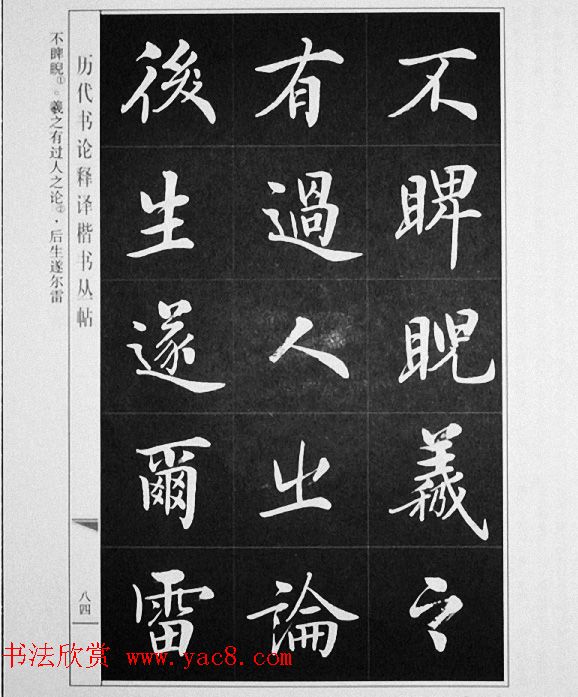 不睥睨羲之
有過人之論
後生遂爾雷
历代书论释译楷书丛帖
八四
不睥睨①。羲之有过人之论②，后生遂尔雷
书法欣赏 www.yac8.com